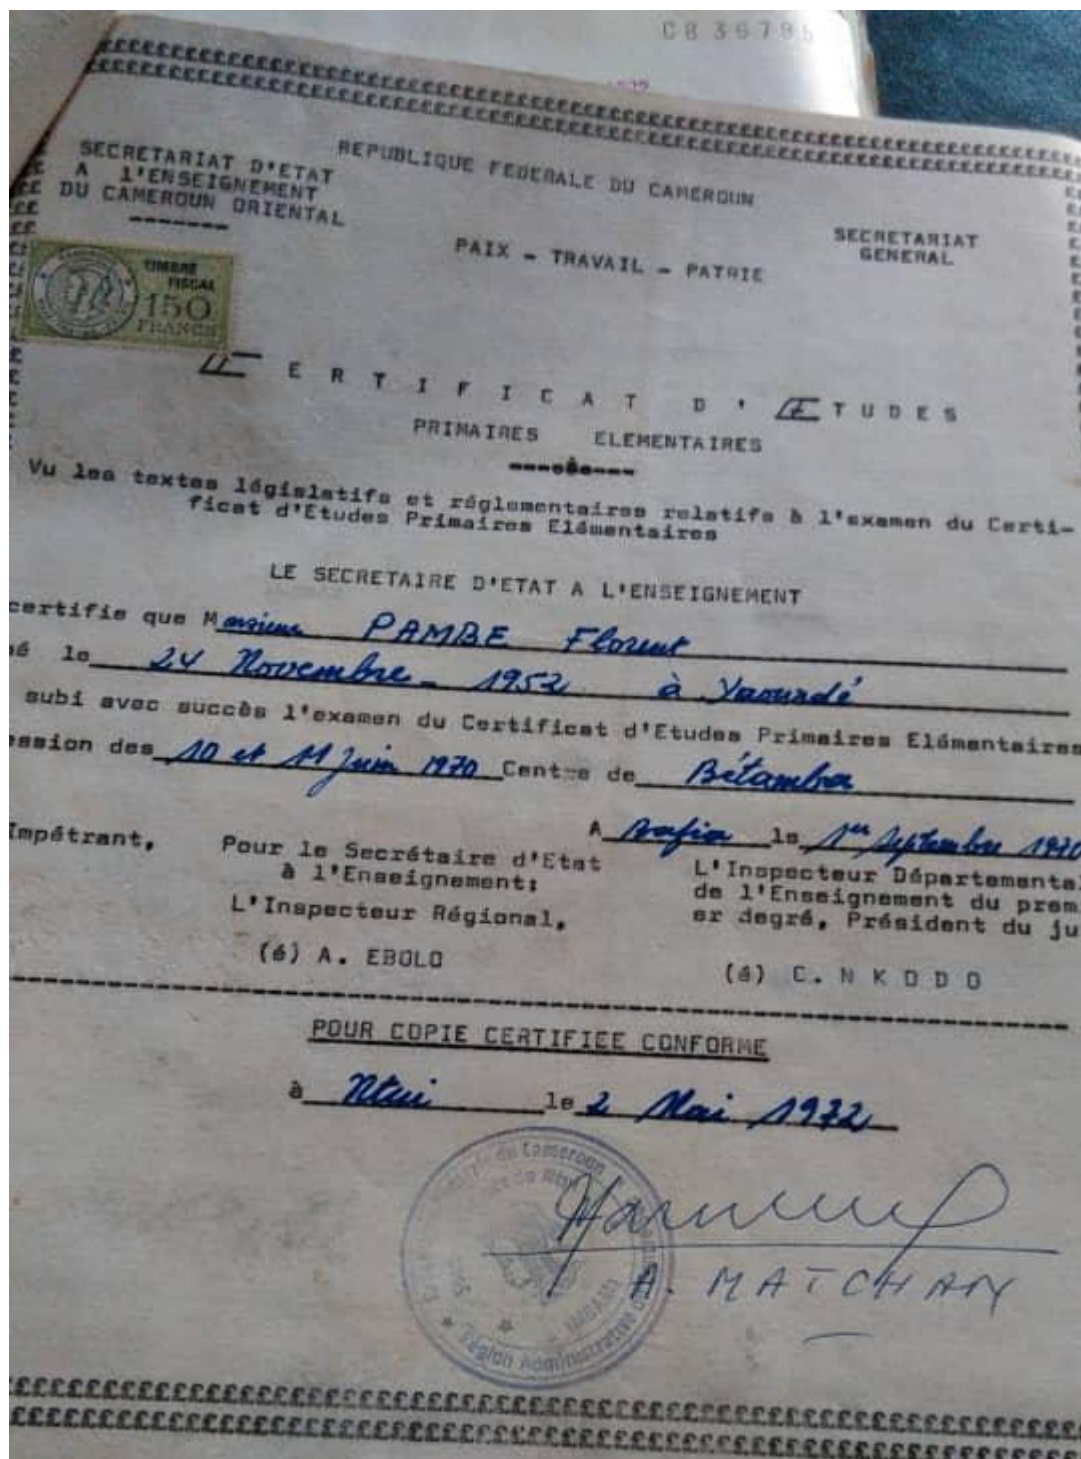 C8 3679
SECRETARIAT D'ETAT
A L'ENSEIGNEMENT
DU CAMEROUN ORIENTAL
REPUBLIQUE FEDERALE DU CAMEROUN
PAIX - TRAVAIL - PATRIE
SECRETARIAT
GENERAL
TIMBRE
FISCAL
150
FRANCS
CERTIFICAT D'ETUDES
PRIMAIRES ELEMENTAIRES
Vu les textes législatifs et réglementaires relatifs à l'examen du Certi-
ficat d'Etudes Primaires Elémentaires
LE SECRETAIRE D'ETAT A L'ENSEIGNEMENT
certifie que Monsieur PAMBE Florent
é le 24 Novembre - 1952 à Yaoundé
subi avec succès l'examen du Certificat d'Etudes Primaires Elémentaires
ession des 10 et 11 Juin 1970 Centre de Bétamba
A Bafia le 1er Septembre 1970
Impétrant,
Pour le Secrétaire d'Etat
à l'Enseignement;
L'Inspecteur Régional,
(é) A. EBOLO
L'Inspecteur Départemental
de l'Enseignement du prem
er degré, Président du ju
(é) C. NKODO
POUR COPIE CERTIFIEE CONFORME
à Ntui le 2 Mai 1972
du Cameroun
Région Administrative
A. MATCHAN